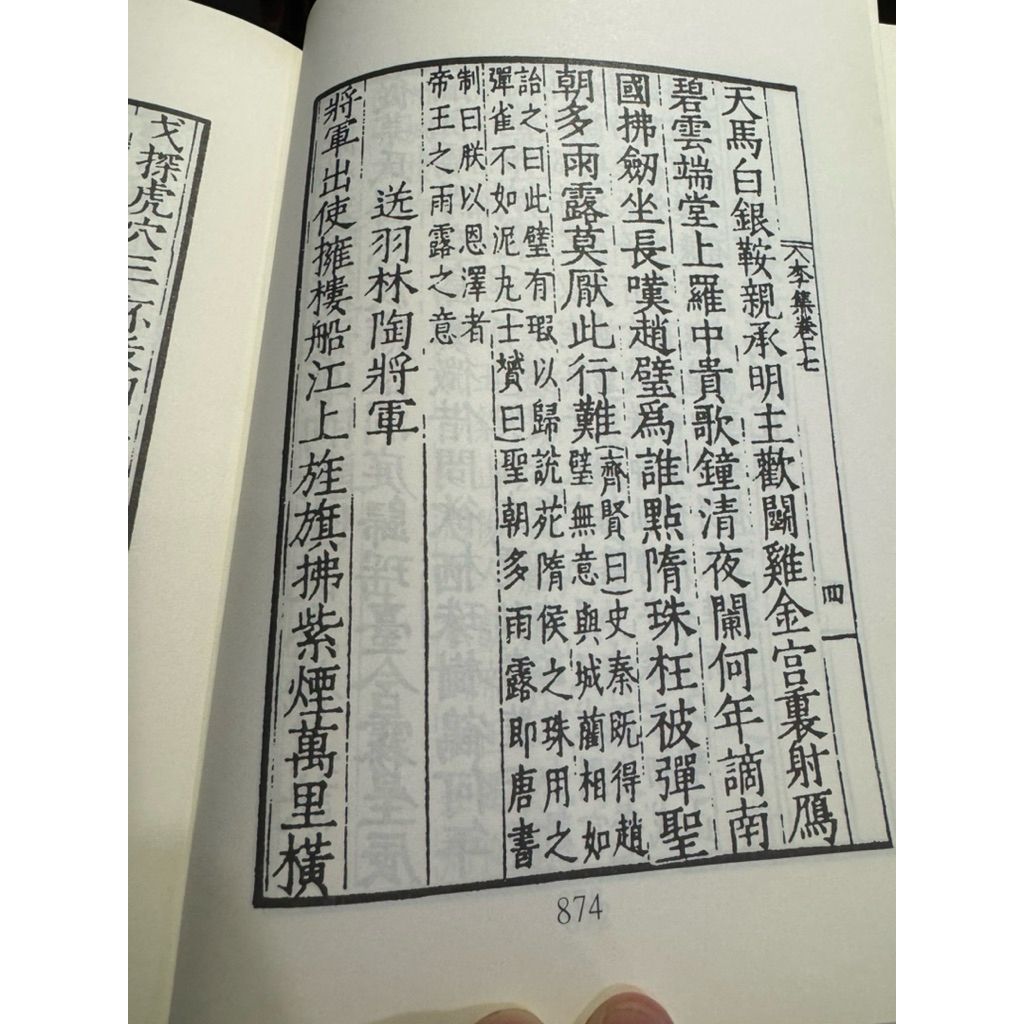 李集卷十七
四
天馬白銀鞍親承明主歡鬬雞金宮裏射鴈
碧雲端堂上羅中貴歌鐘清夜闌何年謫南
國拂劒坐長嘆趙璧爲誰點隋珠枉被彈聖
朝多雨露莫厭此行難
(齊賢曰)史秦既得趙
璧無意與城藺相如
詒之曰此璧有瑕以歸說苑隋侯之珠用之
彈雀不如泥丸(士贇曰)聖朝多雨露即唐書
制曰朕以恩澤者
帝王之雨露之意
送羽林陶將軍
將軍出使擁樓船江上旌旗拂紫煙萬里橫
874
戈探虎穴三